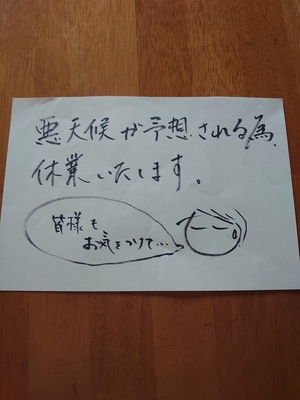 悪天候が予想される為、
休業いたします。
皆様も
お気をつけて…